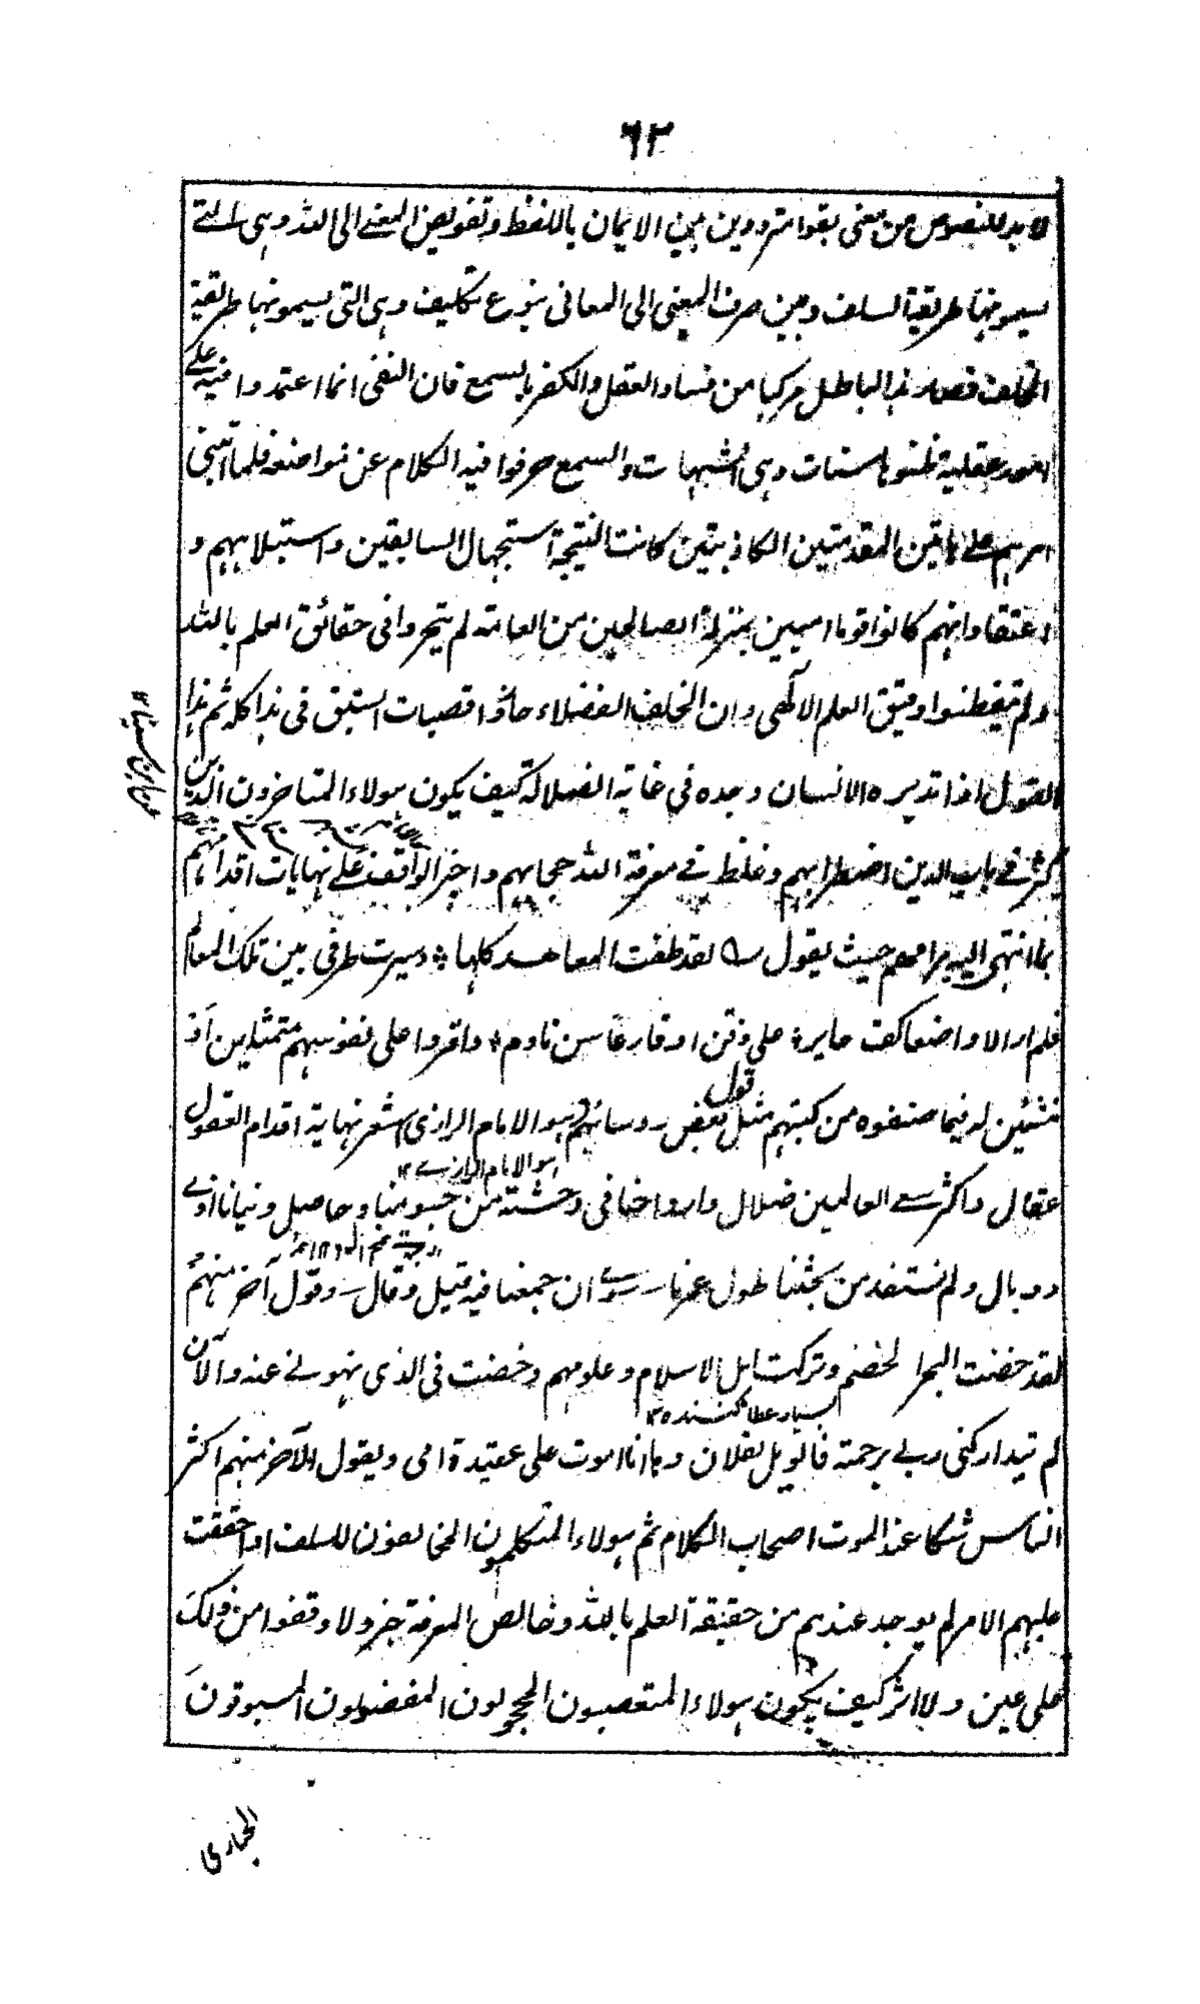 ٦٢
لابد للنصوص من معنى بقوا مترددين بين الايمان باللفظ وتفويض المعنے الى الله وهى التے
يسمونها طريقة السلف وبين صرف المعنى الى المعانى بنوع تكليف وهى التى يسمونها طريقة
الخلف فصار هذا الباطل مركبا من فساد العقل والكفر بالسمع فان النفى انما اعتمدوا فيه علے
امور عقلية ظنوها بينات وهى شبهات والسمع حرفوا فيه الكلام عن مواضعه فلما انبنى
امرهم على هاتين المقدمتين الكاذبتين كانت النتيجة استجهال السابقين واستبلاههم و
اعتقاد انهم كانوا قوما اميين بمنزلة الصالحين من العامة لم يتبحروا فى حقائق العلم بالله
ولم يتفطنوا دقيق العلم الالٓهى وان الخلف الفضلاء حازوا قصبات السبق فى هذا كله ثم هذا
القول اذا تدبره الانسان وجده فى غاية الضلالة كيف يكون هولاء المتاخرون الذين
كثر فے باب الدين اضطرابهم وغلظ فے معرفة الله حجابهم واخبر الواقف علے نهايات اقدامهم
بما انتهى اليه مرامهم حيث يقول لقد طفت المعاهد كلها ؞ وسيرت طرفى بين تلك المعالم
فلم ار الا واضعا كف حاير ؞ على ذقن او قارعا سن نادم ؞ واقروا على نفوسهم متمثلين او
منشئين له فيما صنفوه من كتبهم مثل قول بعض روسائهم وهو الامام الرازى شعر نهاية اقدام العقول
هو الامام الرازے ١٢
عقال واكثر سعے العالمين ضلال وارواحنا فى وحشة من جسومنا وحاصل دنيانا اذے
ووبال ولم نستفد من بحثنا طول عمرنا سوے ان جمعنا فيه قيل وقال وقول آخر منهم
لقد خضت البحر الخضم وتركت اهل الاسلام وعلومهم وخضت فى الذى نهونے عنه والآن
بسيار عطا كننده ١٢
لم يتداركنى ربے برحمته فالويل لفلان وها انا اموت على عقيدة امى ويقول الآخر منهم اكثر
الناس شكا عند الموت اصحاب الكلام ثم هولاء المتكلمون المخالفون للسلف اذا حققت
عليهم الامر لم يوجد عندهم من حقيقة العلم بالله وخالص المعرفة خبر ولا وقفوا من ذلك
على عين ولا اثر كيف يكون هولاء المتعصبون المحجوبون المفضولون المسبوقون